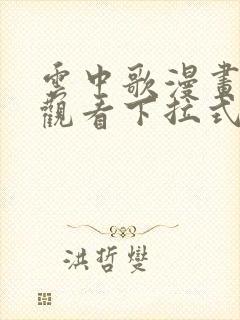 雲中歌漫畫
觀看下拉式
洪哲燮